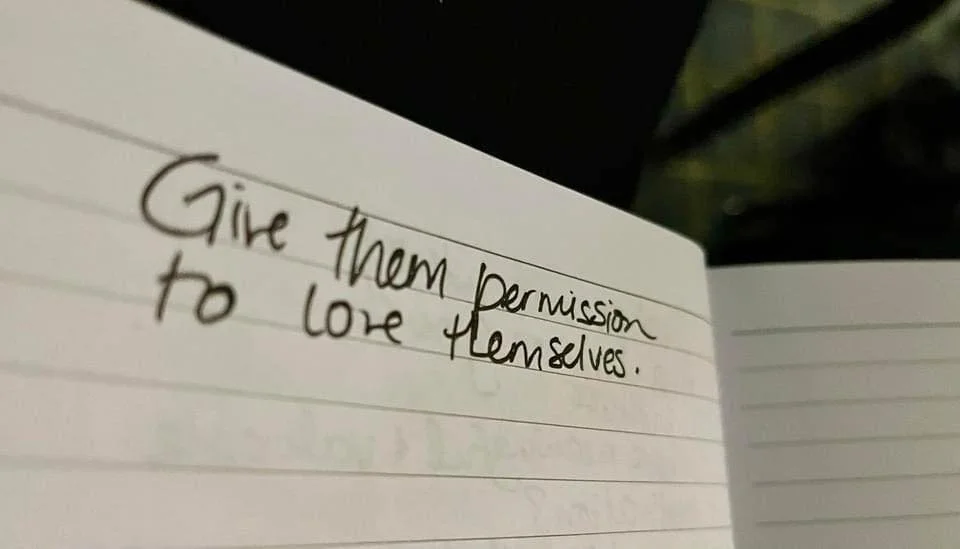 Give them permission
to love themselves.